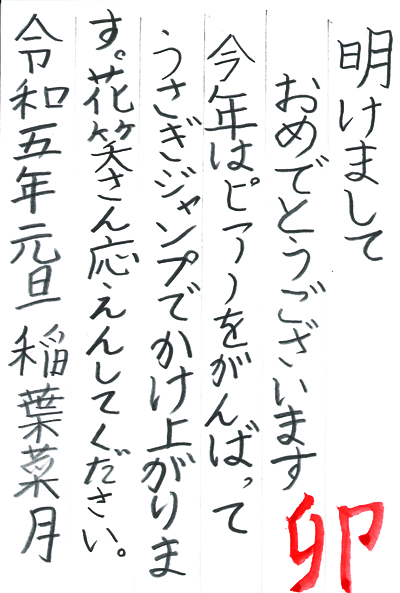 明けまして
おめでとうございます
今年はピアノをがんばって
うさぎジャンプでかけ上がりま
す。花笑さん応えんしてください。
令和五年元旦稲葉菜月
卯